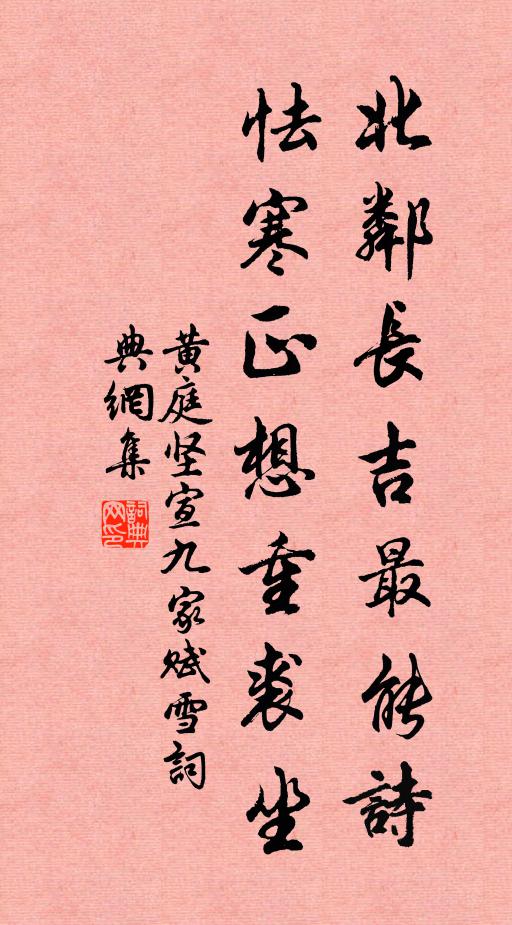 北鄰長吉最能詩
怯寒正想重裘坐
黄庭坚宣九家赋雪詞
典網集
詞典网印